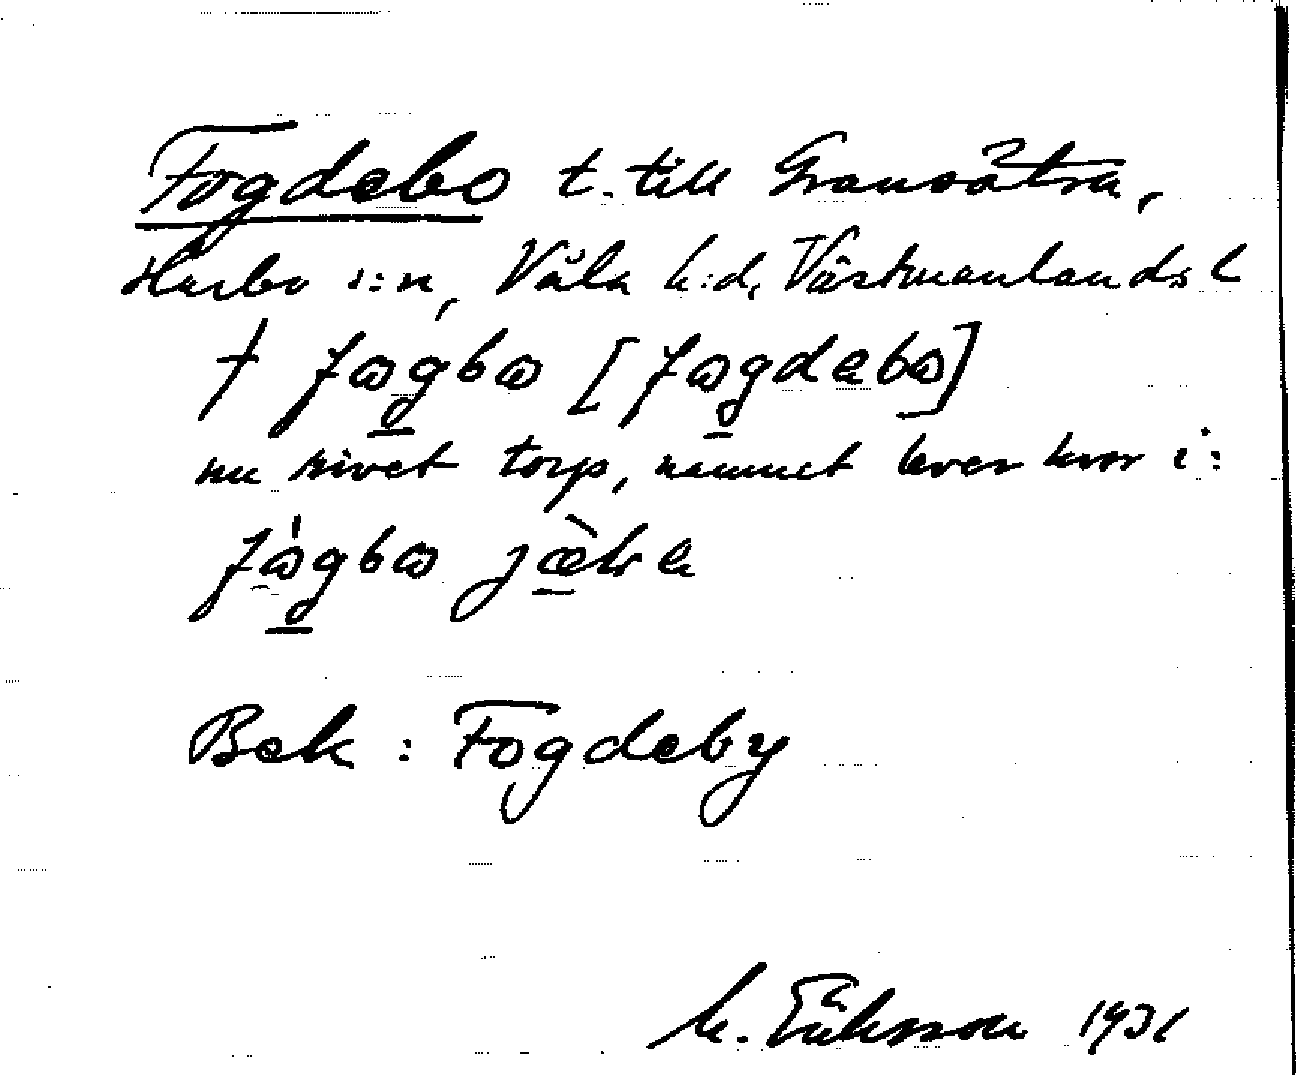 Fogdebo t. till Gransätra,
Harbo s:n, Våla h:d, Västmanlands l
† fωgbω [fωgdabω]
nu rivet torp, namnet lever kvar i:
fωgbω jæḷa
Bek: Fogdeby
M. Eriksson 1931